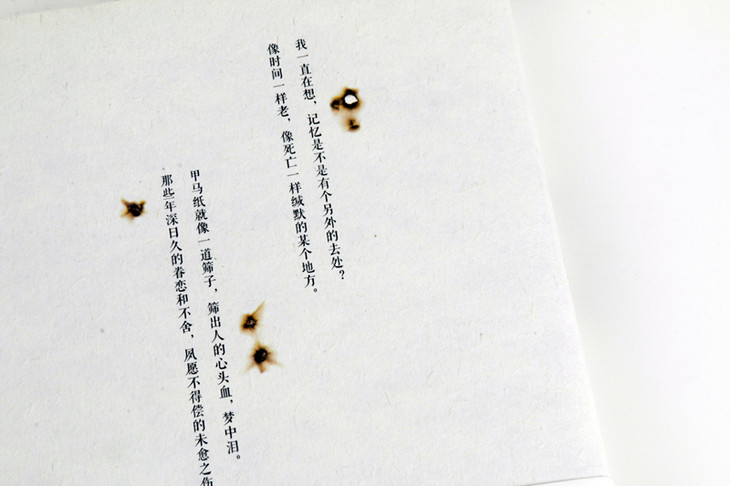 我一直在想，记忆是不是有个另外的去处？
像时间一样老，像死亡一样缄默的某个地方。
甲马纸就像一道筛子，筛出人的心头血，梦中泪。
那些年深日久的眷恋和不舍，夙愿不得偿的未愈之伤